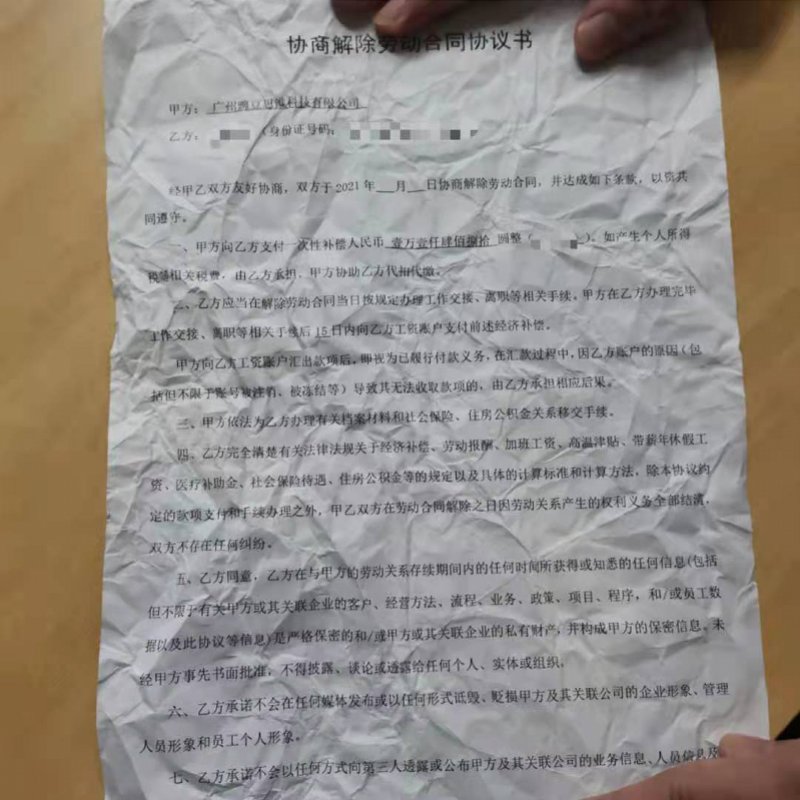 协商解除劳动合同协议书
甲方：广州 思维科技有限公司
乙方： （身份证号码：
经甲乙双方友好协商，双方于2021年___月___日协商解除劳动合同，并达成如下条款，以资共
同遵守。
一、甲方向乙方支付一次性补偿人民币 壹万壹仟肆佰捌拾 圆整（ ）。如产生个人所得
税等相关税费，由乙方承担，甲方协助乙方代扣代缴。
二、乙方应当在解除劳动合同当日按规定办理工作交接、离职等相关手续。甲方在乙方办理完毕
工作交接、离职等相关手续后15日内向乙方工资账户支付前述经济补偿。
甲方向乙方工资账户汇出款项后，即视为已履行付款义务，在汇款过程中，因乙方账户的原因（包
括但不限于账号被注销、被冻结等）导致其无法收取款项的，由乙方承担相应后果。
三、甲方依法为乙方办理有关档案材料和社会保险、住房公积金关系移交手续。
四、乙方完全清楚有关法律法规关于经济补偿、劳动报酬、加班工资、高温津贴、带薪年休假工
资、医疗补助金、社会保险待遇、住房公积金等的规定以及具体的计算标准和计算方法，除本协议约
定的款项支付和手续办理之外，甲乙双方在劳动合同解除之日因劳动关系产生的权利义务全部结清，
双方不存在任何纠纷。
五、乙方同意，乙方在与甲方的劳动关系存续期间内的任何时间所获得或知悉的任何信息(包括
但不限于有关甲方或其关联企业的客户、经营方法、流程、业务、政策、项目、程序，和/或员工数
据以及此协议等信息)是严格保密的和/或甲方或其关联企业的私有财产，并构成甲方的保密信息。未
经甲方事先书面批准，不得披露、谈论或透露给任何个人、实体或组织。
六、乙方承诺不会在任何媒体发布或以任何形式诋毁、贬损甲方及其关联公司的企业形象、管理
人员形象和员工个人形象。
七、乙方承诺不会以任何方向第三人透露或公布甲方及其关联公司的业务信息、人员信息及